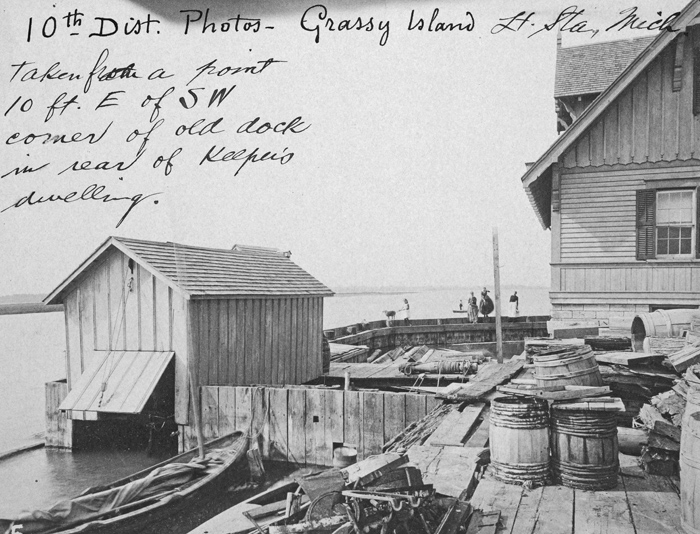 10th Dist. Photos- Grassy Island Lt. Sta, Mich.
Taken from a point
10 ft. E of SW
corner of old dock
in rear of Keeper's
dwelling.
5